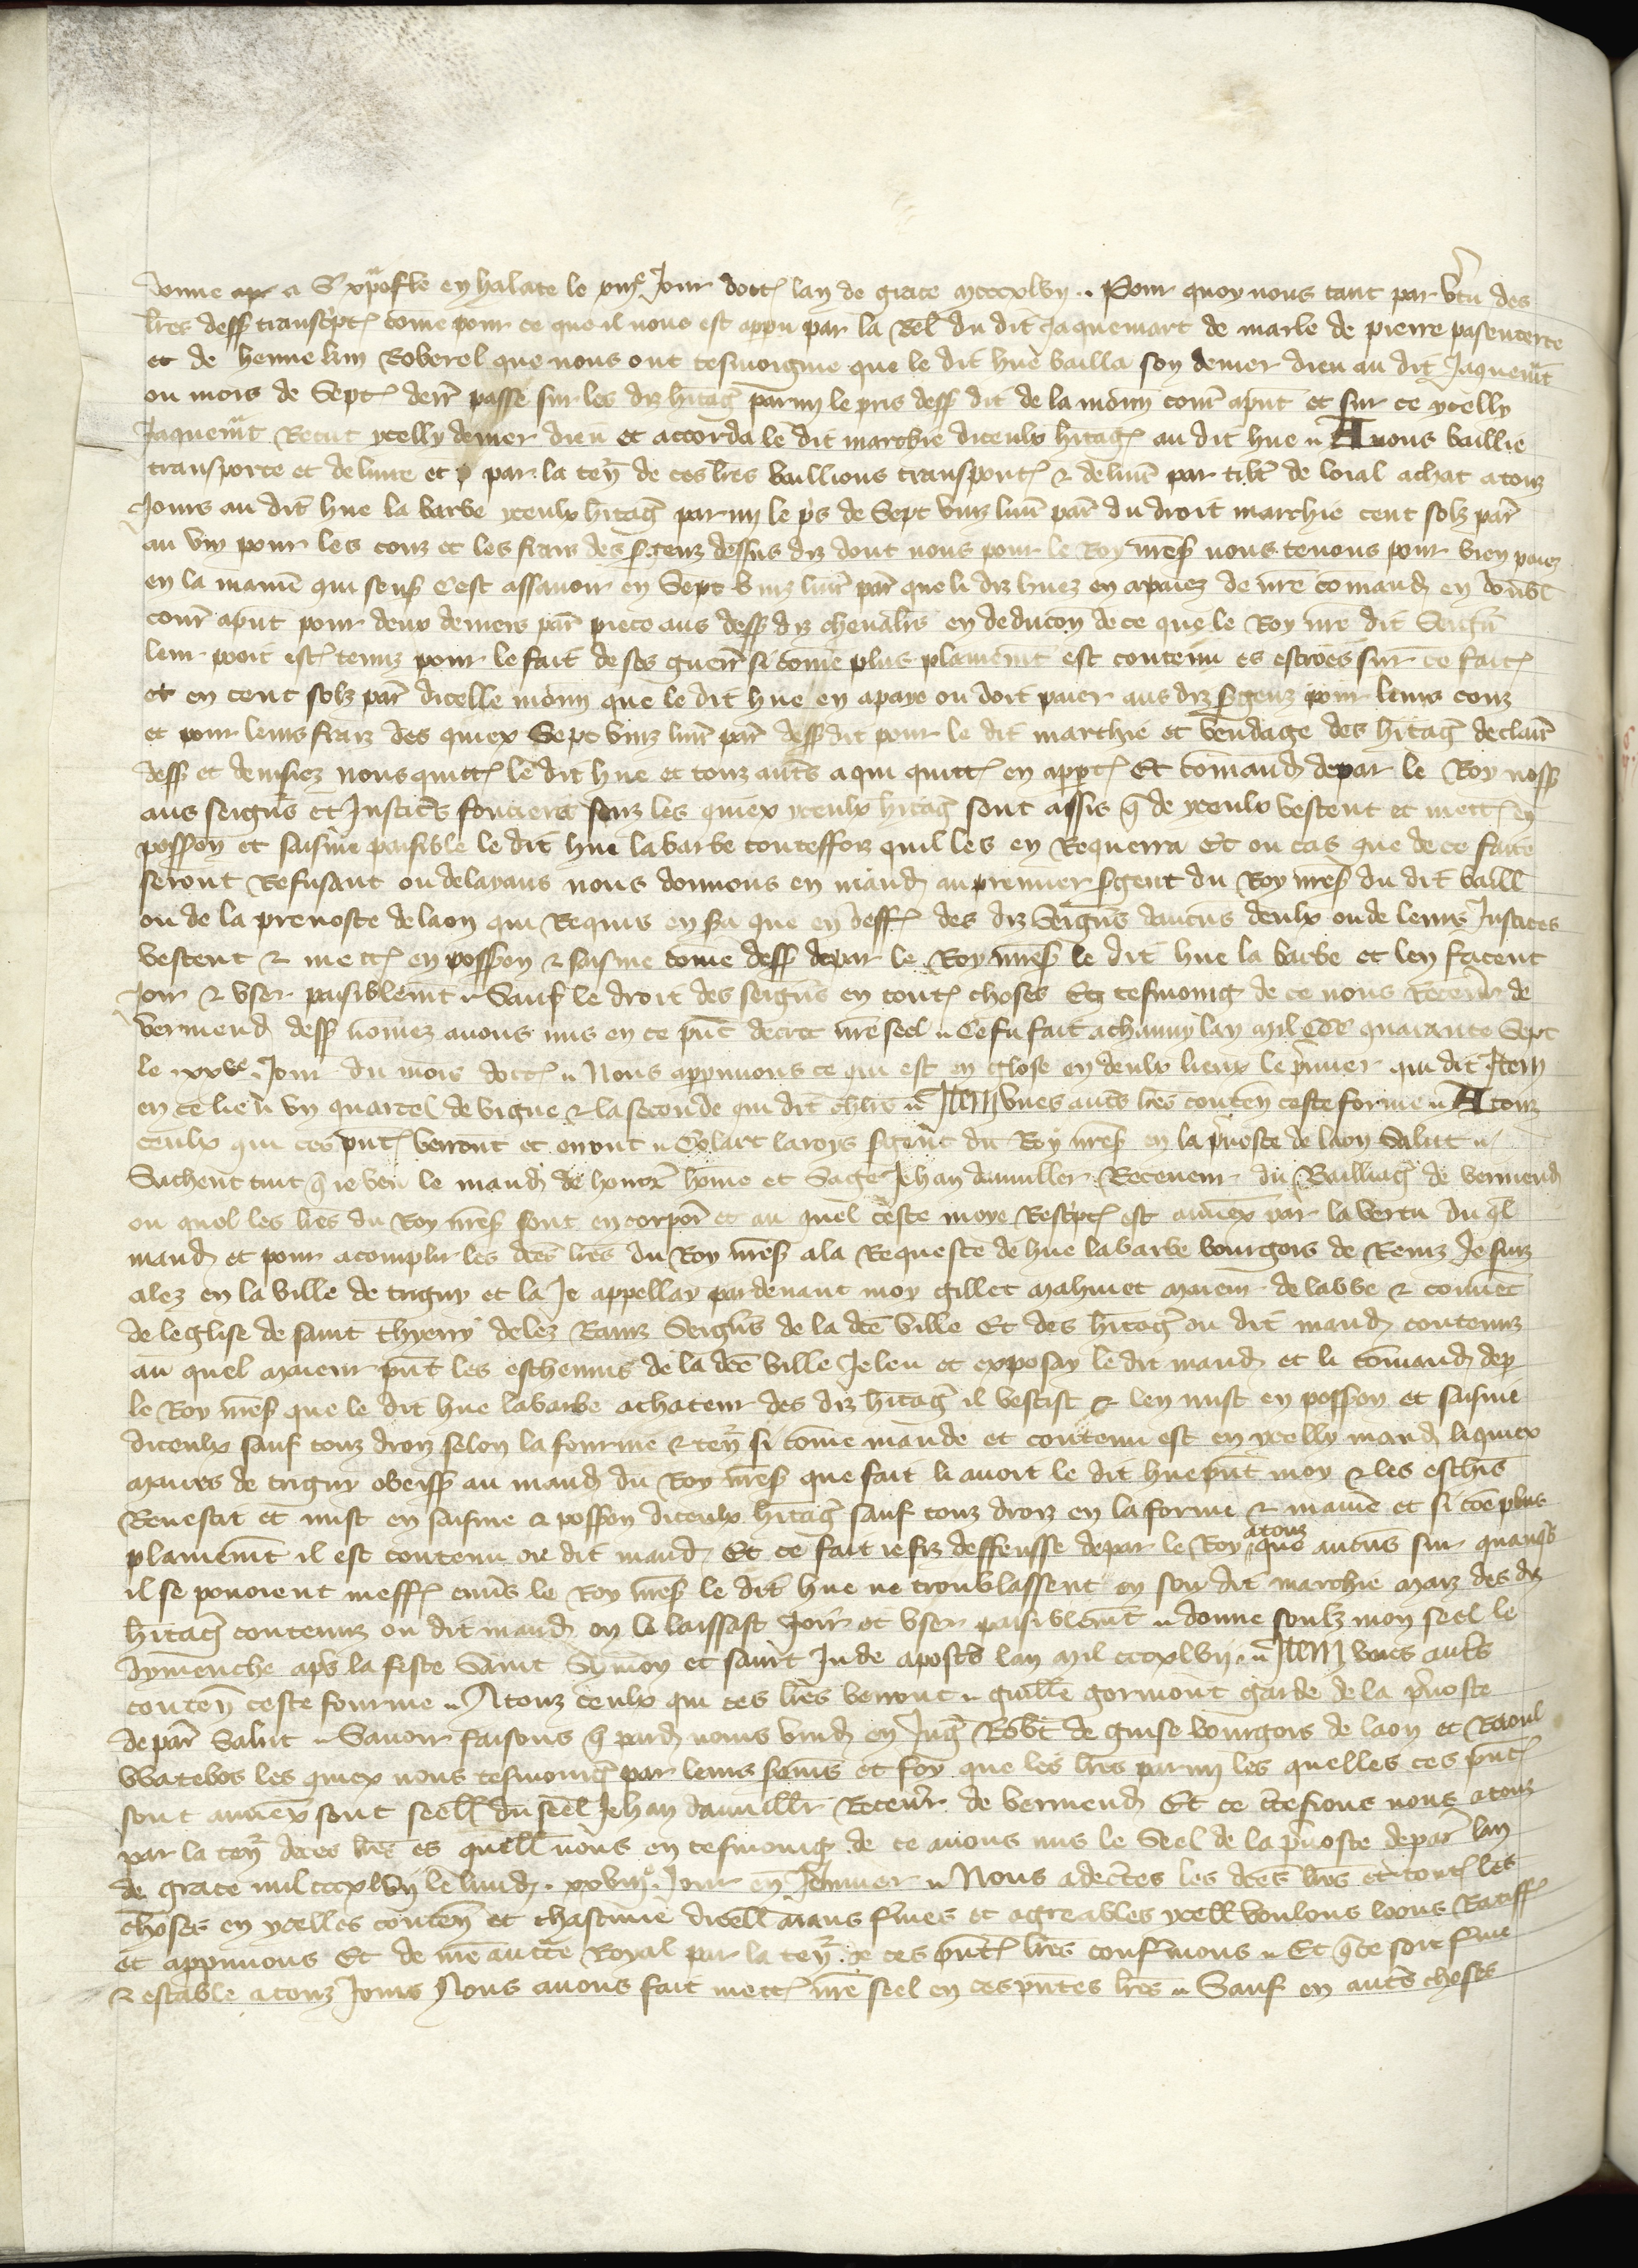 donne a S' xpofle en halate le xiije Jour doct lan de grace mcccxlvij .. Pour quoy nous tant par vtu des
lres dess transcpt come pour ce que il nous est apparu par la Rel du dit Jaquemart de marle de pierre pasenterre
et de hennekin Roberel que nous ont tesmoigne que le dit hue bailla son denier dieu au dit Jaquemt
ou mois de Sept derr passe sur les diz hitag parmi le pris dess dit de la monn cour apnt et sur ce ycelly
Jaquemt Recut ycelly denier dieu et accorda le dit marchie diceulx hitag au dit hue .. Avons baillie
transporte et deliure et par la ten de ces lres baillons transport & deliur par titr de loial achat a touz
Jours au dit hue la barbe yceulx hitag parmi le pris de Sept vinz liur par du droit marchie cent solz par
au vin pour les couz et les fraiz des sgenz dessus diz dont nous pour le Roy nres nous tenons pour bien paiez
en la manie qui sens Cest assauoir en Sept vinz liur par que li diz huez en a paiez de nre comand en doubl
cour apnt pour deux deniers par piece aus dess diz chevalrs en deducon de ce que le Roy nre dit Seign
leur poit est tenuz pour le fait de ses guerr si come plus plainemt est contenu es escroes sur ce fait
et en cent solz par dicelle monn que le dit hue en a paye ou doit paier aus diz sgenz pour leurs couz
et pour leurs fraiz des quiex Sept vinz liur par dess dit pour le dit marchie et vendage des hitag declair
dess et deuisez nous quitt le dit hue et touz autrs a qui quitt en appt Et comand depar le Roy noss
aus seigns et Justices foncieres souz les quiex yceulx hitag sont assis q de yceulx vestent et mett en
posson et saisine paisible le dit hue la barbe touteffoiz quil les en Requerra Et ou cas que de ce faire
seront Refusant ou delayans nous donnons en mand au premier sgent du Roy nres du dit baill
ou de la preuoste de laon qui Requis en sa que en deff des diz Seigns daucuns deulx ou de leurs Justices
vestent & mett en posson & saisine come dess depar le Roy nres le dit hue la barbe et len facent
Joir & vser paisiblemt .. Sauf le droit des seigns en tout choses En tesmoing de ce nous Receur de
vermend dess nomez auons mis en ce pnt decret nre seel .. Ce fu fait a chauny lan mil CCC quarante Sept
le xxve Jour du mois doct .. Nous appruuons ce qui est en glose en deulx lieux le pmier qui dit Item
en ce lieu vn quartel de vigne & la seconde qui dit chlrs .. Item vnes autrs lres conten ceste forme .. A touz
ceulx qui ces pnt verront et orront .. Colart laroys sgent du Roy nres en la pnoste de laon Salut ..
Sachent tuit q ie veu le mand de honor home et Sage Jehan dauuiller Receueur du Bailliag de vermend
ou quel les lres du Roy nres sont encorpor et au quel ceste moye Rescpt est annex par la vertu du ql
mand et pour acomplir les dces lres du Roy nres a la Requeste de hue la barbe bourgois de Reinz Je suiz
alez en la ville de trigny et la Je appellay pardeuant moy gillet mahuiet maieur de labbe & couuet
de leglise de saint thyerry delez Rainz Seigns de la dce ville Et des hitag ou dit mand contenuz
au quel maieur pnt les escheuins de la dce ville Je leu et exposay le dit mand et li comand dep
le Roy nres que le dit hue labarbe achateur des diz hitag il vestist & len mist en posson et saisine
diceulx sauf touz droiz selon la fourme & ten si come mande et contenu est en ycelly mand liquiex
maires de trigny obeiss au mand du Roy nres que fait li auoit le dit hue pnt moy & les eschns
Reuestit et mist en saisine & posson diceulx hitag sauf touz droiz en la forme & manie et si coe plus
plainemt il est contenu ou dit mand Et ce fait ie fiz deffensse depar le Roy a touz que aucuns sur quanqs
il se pouoient meff enurs le Roy nres le dit hue ne troublassent en son dit marchie maiz des diz
hitag contenuz ou dit mand en le laissast Joir et vser paisiblemt .. donne soulz mon seel le
dymenche aps la feste Saint Symon et saint Jude apostrs lan mil cccxlvij .. Item vnes autrs
conten ceste fourme .. A touz ceulx qui ces lres verront .. guille gormont garde de la pnoste
de par Salut .. Sauoir faisons q pard nous vind en Jug Robt de guise bourgois de laon et Raoul
Watebos les quiex nous tesmoing par leurs sermns et foy que les lres parmi les quelles ces pnt
sont annex sont seell du seel Jehan dauuillr Receur de vermend Et ce ctefions nous a touz
par la ten de ces lres es quell nous en tesmoing de ce auons mis le Seel de la pnoste de par lan
de grace mil cccxlvij le lund . xxviije Jour en Jenuier .. Nous adectes les dces lres et tout les
choses en ycelles conten et chascune dicell aians fmes et agreables ycell voulons loons Ratiff
et appruuons Et de nre aucte Royal par la ten de ces pnt lres confmons .. Et q ce soit fme
& estable a touz Jours Nous auons fait mett nre seel en ces pntes lres .. Sauf en autrs choses